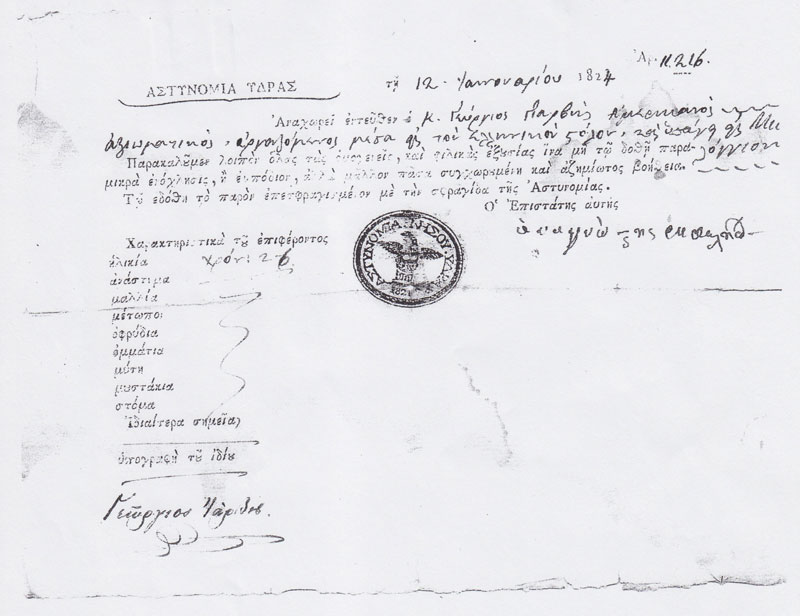 Ἀρ. 11.216.
ΑΣΤΥΝΟΜΙΑ ΥΔΡΑΣ τῇ 12 Ἰαννουαρίου 1824
Ἀναχωρεῖ ἐντεῦθεν ὁ Κ. Γεώργιος Ἀμερικανὸς
ἀξιωματικὸς, μέσα εἰς τὸν στόλον,
Παρακαλῦμεν λοιπὸν ὅλας τὰς καὶ φιλικὰς ἐξυσίας ἵνα μὴ τῷ δοθῇ παρα-
μικρὰ ἐνόχλησις, ἢ ἐμπόδιον, ἀλλὰ μᾶλλον πᾶσα συγχωρημένη καὶ ἀζημίωτος βοήθεια.
Τῷ ἐδόθη τὸ παρὸν ἐπεσφραγισμένον μὲ τὴν σφραγίδα τῆς Ἀστυνομίας.
Ὁ Ἐπιστάτης αὐτῆς
ΑΣΤΥΝΟΜΙΑ ΝΗΣΟΥ ΥΔΡΑΣ
Χαρακτηριστικὰ τῦ ἐπιφέροντος
ἡλικία χρόν: 26
ἀνάστιμα
μαλλία
μέτωπον
ὀφρύδια
ὀμμάτια
μύτη
μυστάκια
στόμα
Ἰδιαίτερα σημεῖα
ὑπογραφὴ τῦ ἰδίυ
Γεώργιος